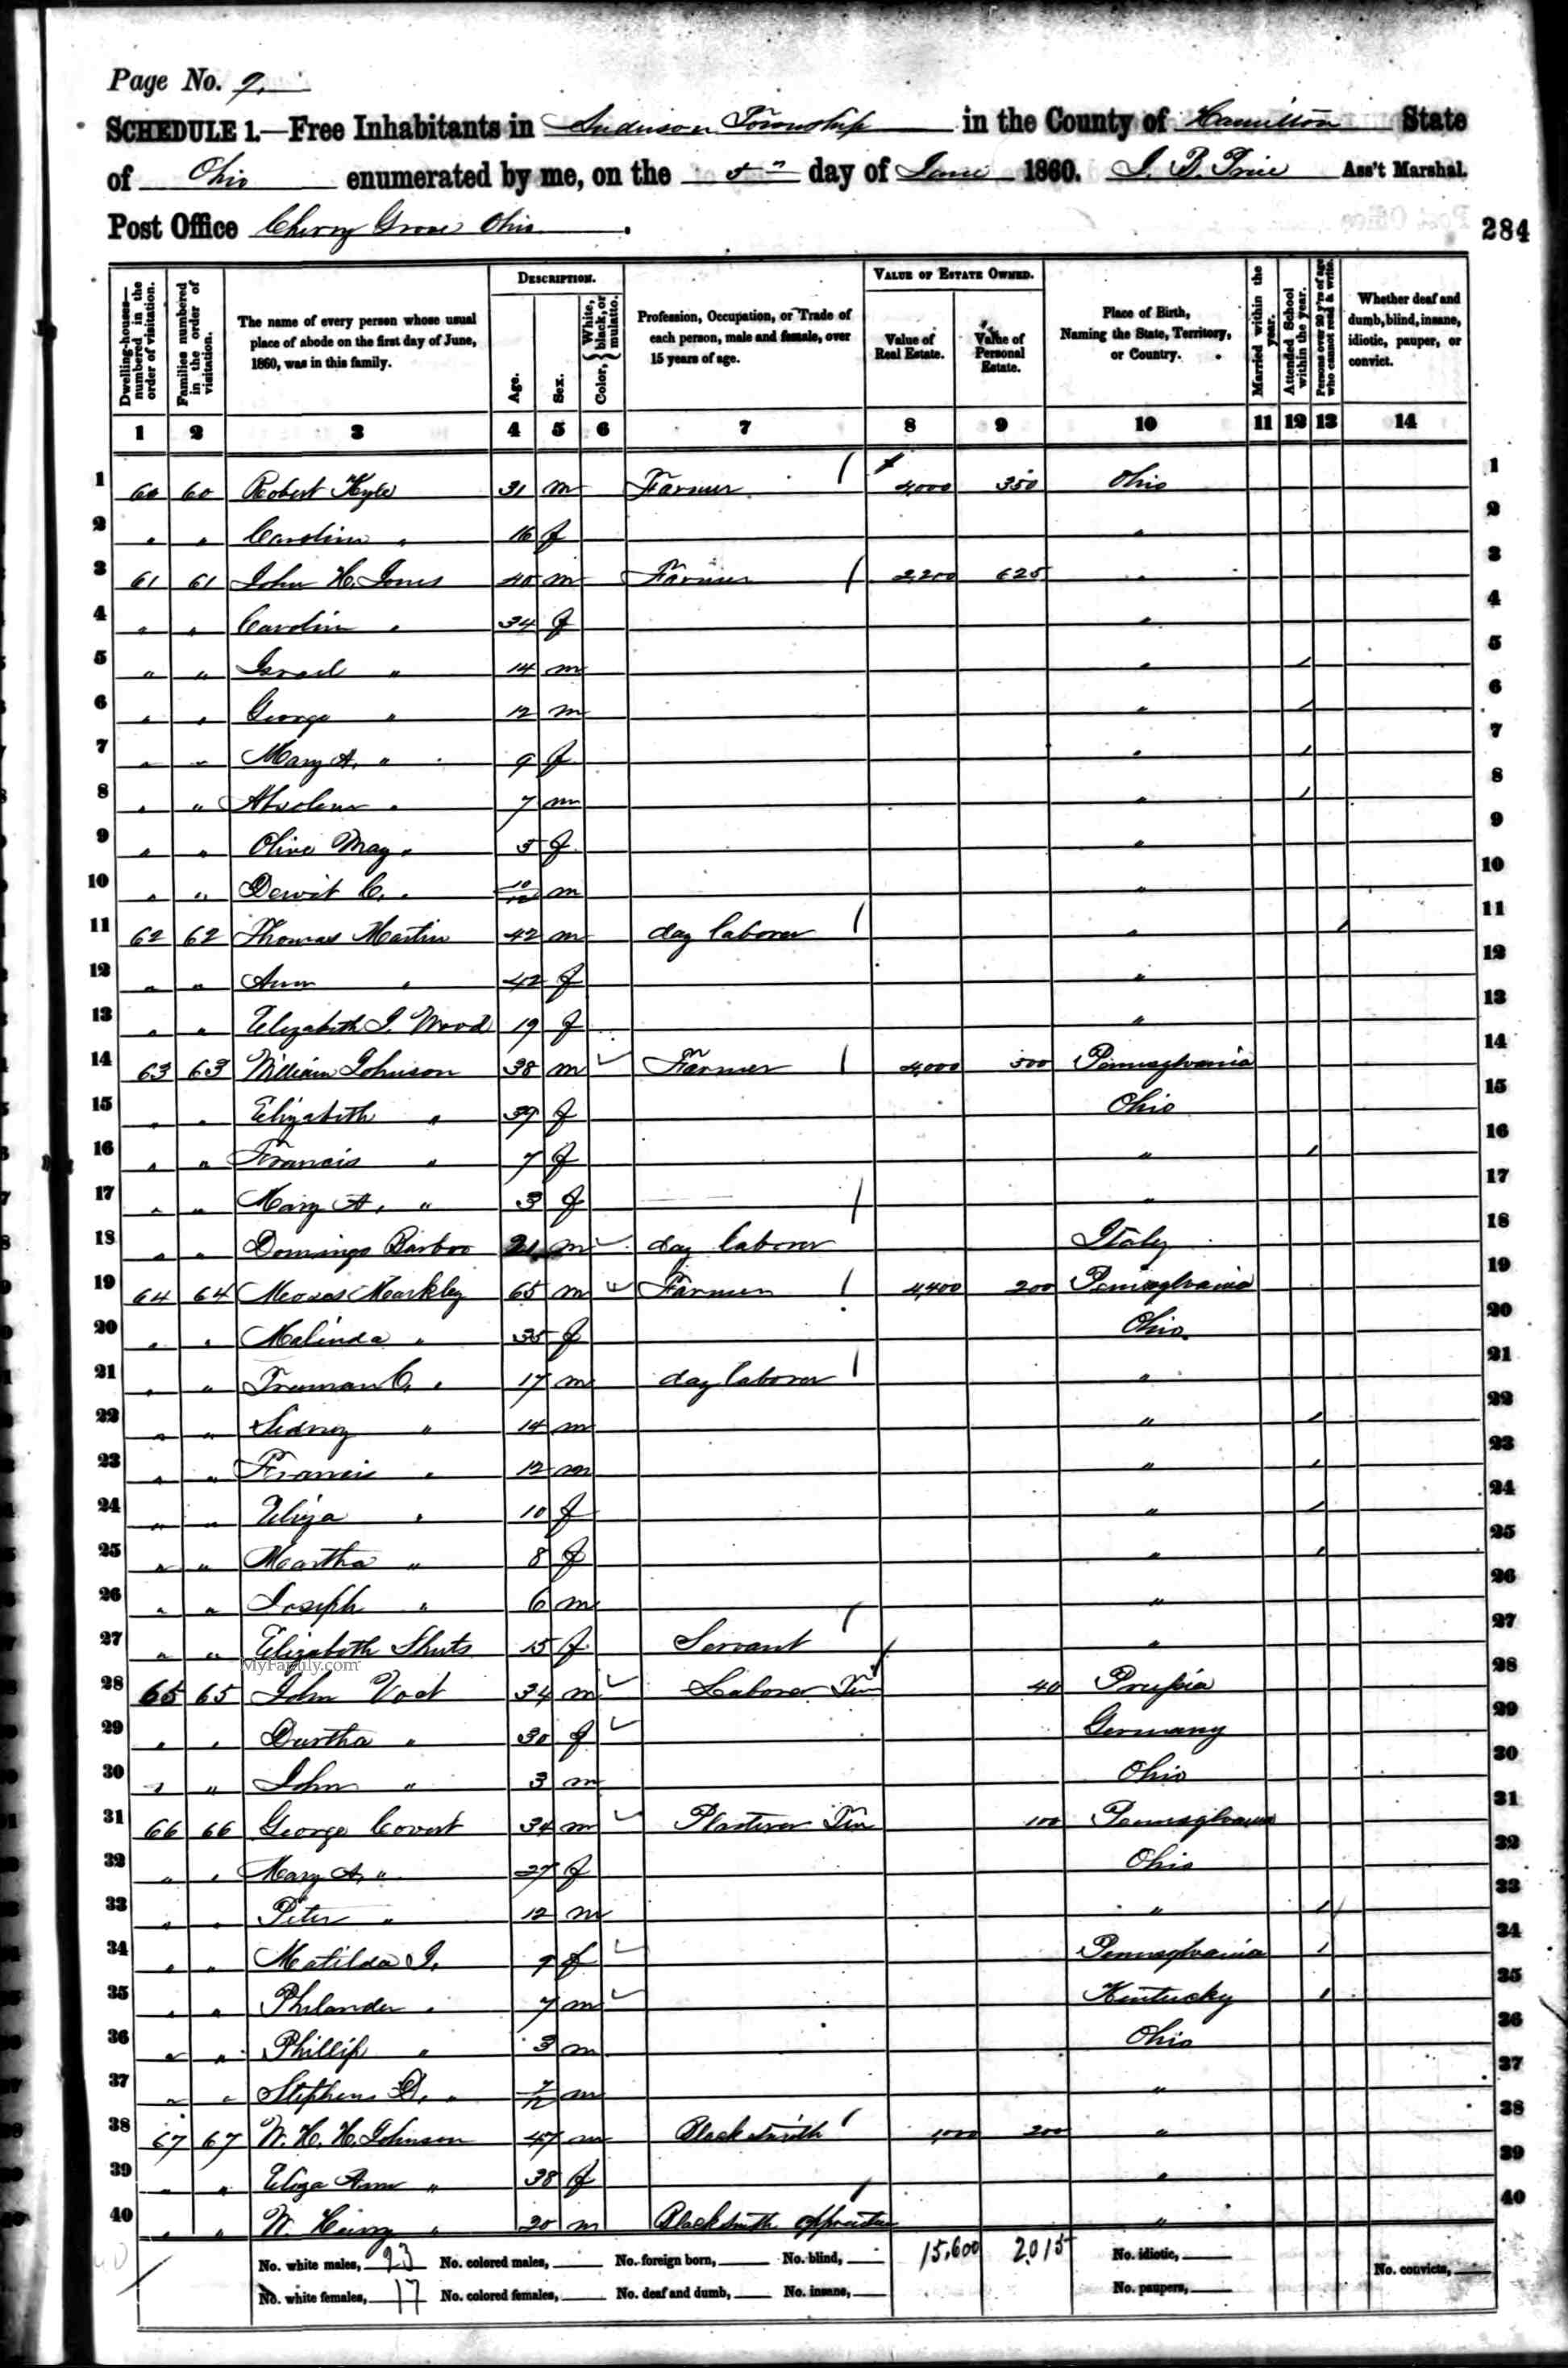 Page No. 9.
SCHEDULE 1.—Free Inhabitants in Anderson Township in the County of Hamilton State
of Ohio enumerated by me, on the 5" day of June 1860. J. B. Price Ass't Marshal.
Post Office Cherry Grove Ohio.
284
Dwelling-houses—numbered in the order of visitation.
Families numbered in the order of visitation.
The name of every person whose usual place of abode on the first day of June, 1860, was in this family.
DESCRIPTION.
Age.
Sex.
Color, { White, black, or mulatto.
Profession, Occupation, or Trade of each person, male and female, over 15 years of age.
VALUE OF ESTATE OWNED.
Value of Real Estate.
Value of Personal Estate.
Place of Birth, Naming the State, Territory, or Country.
Married within the year.
Attended School within the year.
Persons over 20 y'rs of age who cannot read & write.
Whether deaf and dumb, blind, insane, idiotic, pauper, or convict.
1 2 3 4 5 6 7 8 9 10 11 12 13 14
1 60 60 Robert Kyle 31 m Farmer / 4,000 350 Ohio 1
2 " " Caroline " 16 f " 2
3 61 61 John H. Jones 40 m Farmer / 2200 625 " 3
4 " " Carolin " 34 f " 4
5 " " Israel " 14 m " / 5
6 " " George " 12 m " / 6
7 " " Mary A. " 9 f " / 7
8 " " Absolem " 7 m " / 8
9 " " Olive May " 5 f " 9
10 " " Dewit C. " 10/12 m " 10
11 62 62 Thomas Martin 42 m day laborer / " / 11
12 " " Ann " 42 f " 12
13 " " Elizabeth J. Wood 19 f " 13
14 63 63 William Johnson 38 m ✓ Farmer / 4,000 500 Pennsylvania 14
15 " " Elizabeth " 39 f Ohio 15
16 " " Francis " 7 f " / 16
17 " " Mary A. " 3 f / " 17
18 " " Domingo Barboo 21 m ✓ day laborer Italy 18
19 64 64 Moses Markley 65 m ✓ Farmer / 4,400 200 Pennsylvania 19
20 " " Malinda " 35 f Ohio 20
21 " " Truman C. " 17 m day laborer / " 21
22 " " Sidney " 14 m " / 22
23 " " Francis " 12 m " / 23
24 " " Eliza " 10 f " / 24
25 " " Martha " 8 f " / 25
26 " " Joseph " 6 m " 26
27 " " Elizabeth Shuts 15 f Servant / " 27
MyFamily.com
28 65 65 John Voat 34 m ✓ Laborer Ten 40 Prussia 28
29 " " Durtha " 30 f ✓ Germany 29
30 " " John " 3 m Ohio 30
31 66 66 George Covert 34 m ✓ Plasterer Ten 100 Pennsylvania 31
32 " " Mary A. " 27 f Ohio 32
33 " " Peter " 12 m " / 33
34 " " Matilda J. 9 f ✓ Pennsylvania / 34
35 " " Philander " 7 m ✓ Kentucky / 35
36 " " Phillip " 3 m Ohio 36
37 " " Stephen D. " 7/12 m " 37
38 67 67 W. H. H. Johnson 47 m Blacksmith / 1,000 200 " 38
39 " " Eliza Ann " 38 f " 39
40 " " W Henry " 20 m Blacksmith apprentice / " 40
No. white males, 23 No. colored males, No. foreign born, No. blind, 15,600 2,015 No. idiotic, No. convicts,
No. white females, 17 No. colored females, No. deaf and dumb, No. insane, No. paupers,